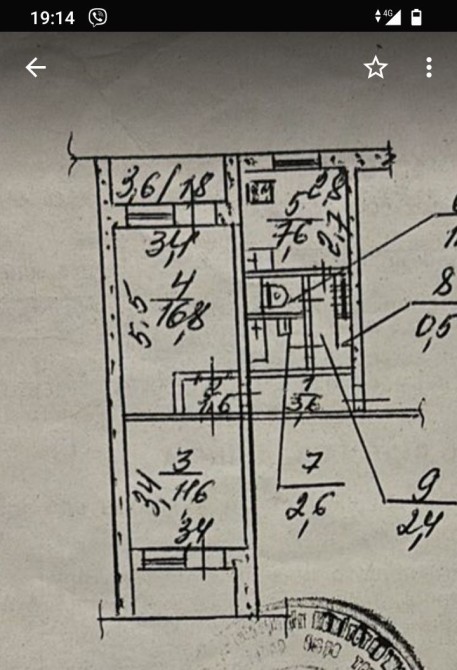 19:14
4G
3,6/1,8
2,8
5
7,6
2,7
3,1
4
16,8
5,5
8
0,5
1
3,6
3
11,6
3,4
3,4
7
2,6
9
2,4